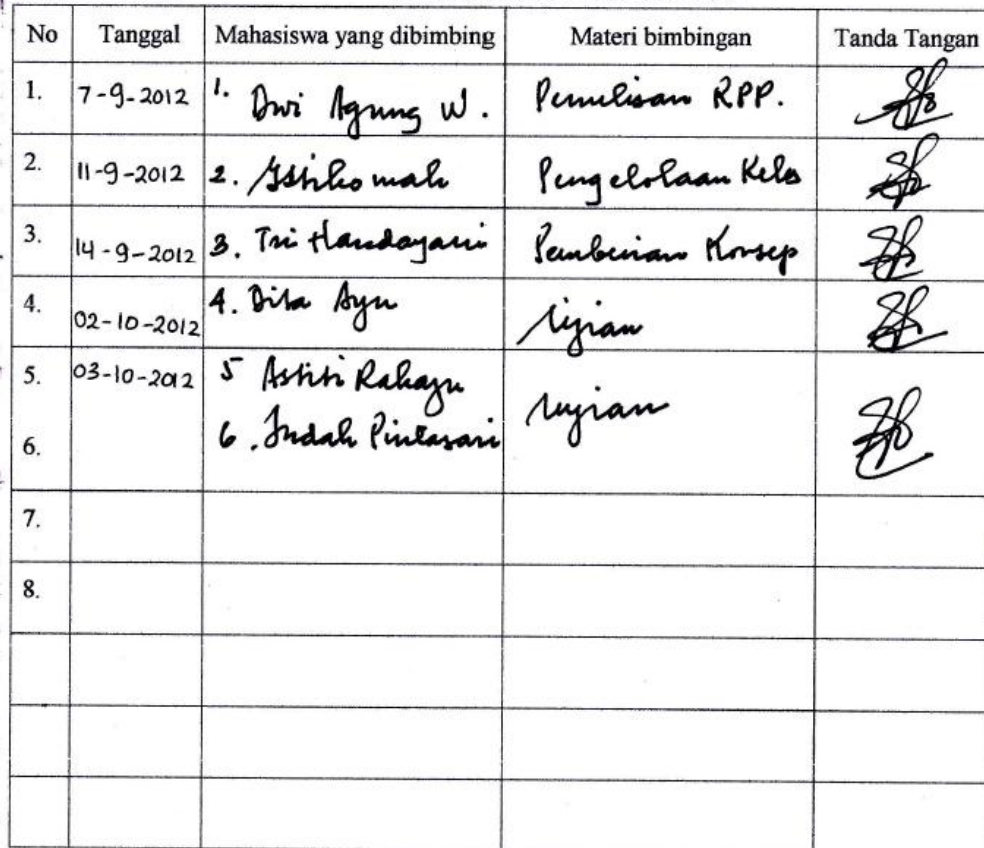 No Tanggal Mahasiswa yang dibimbing Materi bimbingan Tanda Tangan
1. 7-9-2012 1. Dwi Agung W. Penulisan RPP.
2. 11-9-2012 2. Istikomah Pengelolaan Kelas
3. 14-9-2012 3. Tri Handayani Pemberian Konsep
4. 02-10-2012 4. Dita Ayu Ujian
5. 03-10-2012 5 Astiti Rahayu Ujian
6. 6. Indah Pintasari
7.
8.